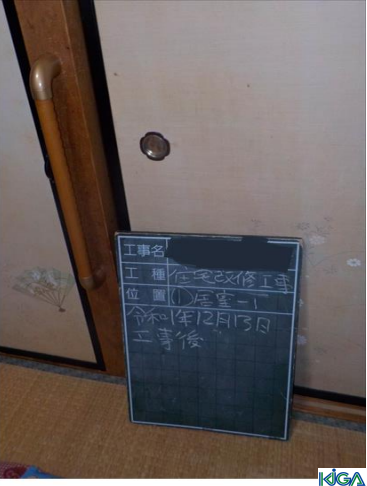 工事名
工種 住宅改修工事
位置 (1)居室-1
令和1年12月13日
工事後
KiGA